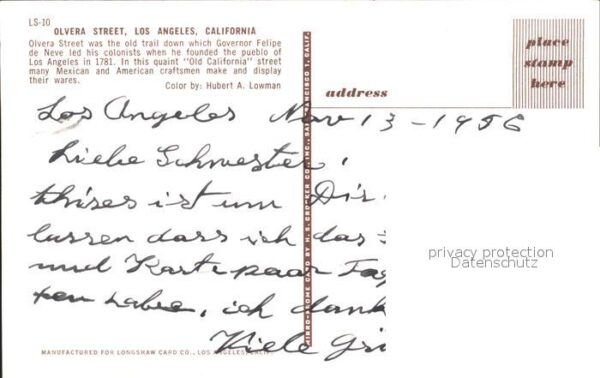 LS-10
OLVERA STREET, LOS ANGELES, CALIFORNIA
Olvera Street was the old trail down which Governor Felipe
de Neve led his colonists when he founded the pueblo of
Los Angeles in 1781. In this quaint "Old California" street
many Mexican and American craftsmen make and display
their wares.
Color by: Hubert A. Lowman
place
stamp
here
address
Los Angeles Nov 13 - 1956
Liebe Schwester,
ist um Dir
lassen dass ich das
und Karte paar Tag
habe, ich dank
Viele Grü
MIRRO-KROME CARD BY H. S. CROCKER CO., INC., SAN FRANCISCO 1, CALIF.
privacy protection
Datenschutz
MANUFACTURED FOR LONGSHAW CARD CO., LOS ANGELES, CALIF.